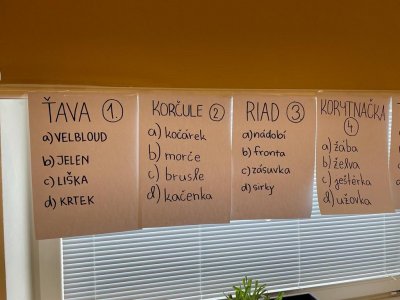 ŤAVA 1.
a) VELBLOUD
b) JELEN
c) LIŠKA
d) KRTEK
KORČULE 2
a) kočárek
b) morče
c) brusle
d) kačenka
RIAD 3
a) nádobí
b) fronta
c) zásuvka
d) sirky
KORYTNAČKA
4
a) žába
b) želva
c) ještěrka
d) užovka